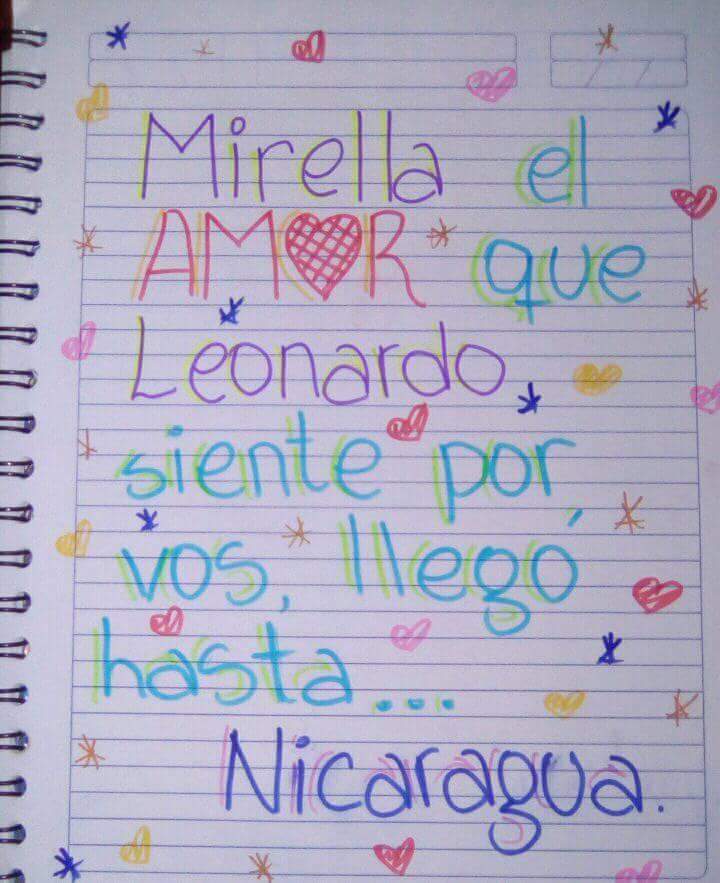 Mirella el
AMOR que
Leonardo
siente por
vos, llegó
hasta...
Nicaragua.